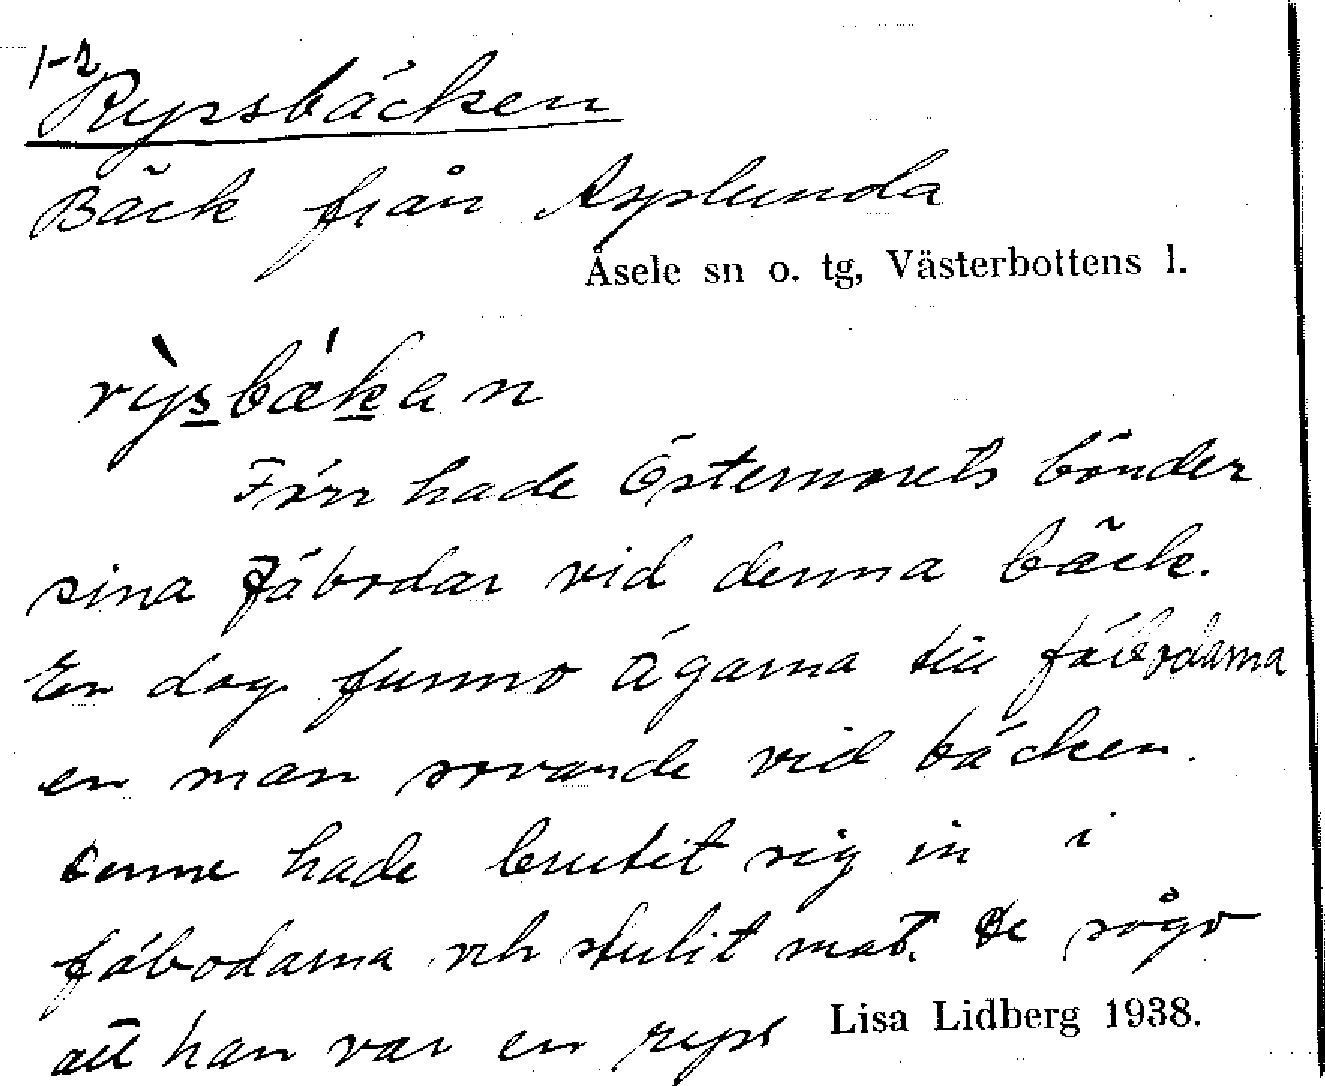 1-2
Ryssbäcken
Bäck från Asplunda
Åsele sn o. tg, Västerbottens l.
rỳsbǽkan
Förr hade Östernorets bönder
sina fäbodar vid denna bäck.
En dag funno ägarna till fäbodarna
en man sovande vid bäcken.
Denne hade brutit sig in i
fäbodarna och stulit mat. De sågo
att han var en ryss
Lisa Lidberg 1938.